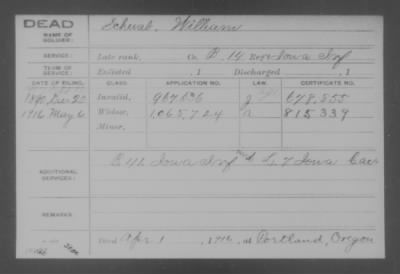 DEAD
NAME OF SOLDIER: Schwab, William
SERVICE: Late rank, Co. B, 14 Reg't Iowa Inf
TERM OF SERVICE: Enlisted , 1 Discharged , 1
DATE OF FILING. CLASS. APPLICATION NO. LAW. CERTIFICATE NO.
1890 Dec 22 Invalid, 967,636 g 678,555
1916 May 6 Widow, 1,065,724 a 815,339
Minor,
ADDITIONAL SERVICES: B 41 Iowa Inf and L, 7 Iowa Cav
REMARKS:
Died Apr 1 , 1916, at Portland, Oregon